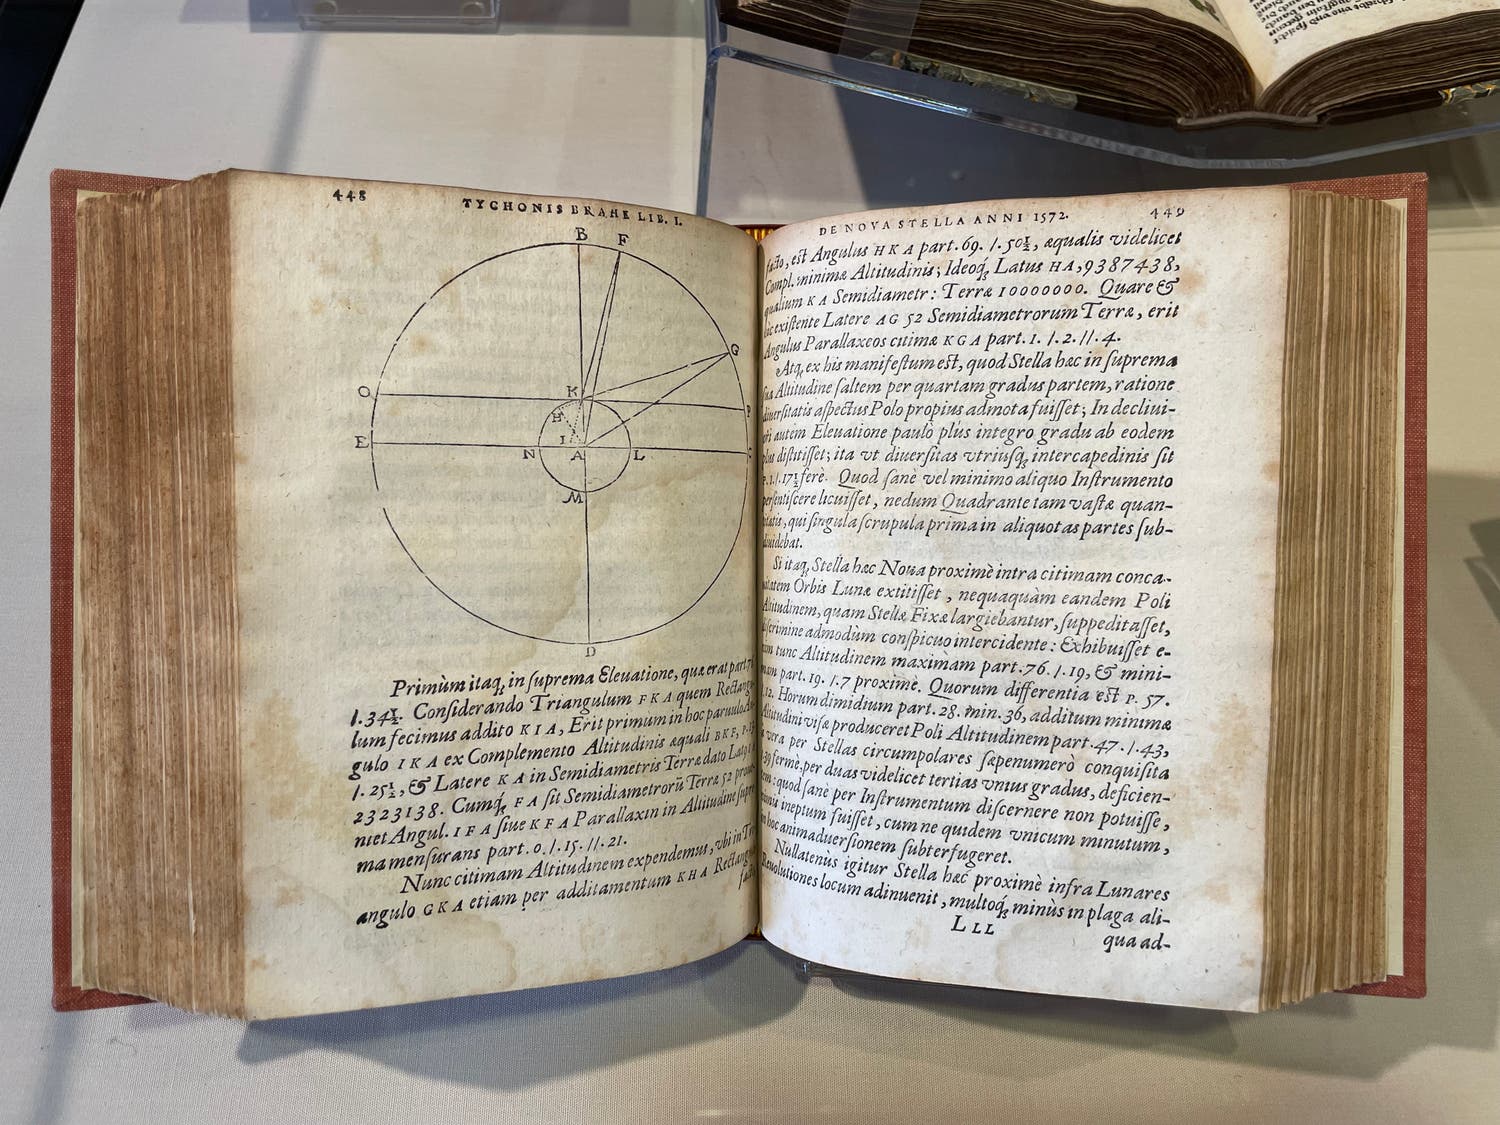 448
TYCHONIS BRAHE LIB. I.
B F
G
O K P
H
E I
N A L
M
D
Primùm itaq; in suprema Eleuatione, quæ erat part.
/.34½. Considerando Triangulum FKA quem Rectangu
lum fecimus addito KIA, Erit primum in hoc paruulo
gulo IKA ex Complemento Altitudinis æquali BKF,
/.25½, & Latere KA in Semidiametris Terræ dato Latus
2323138. Cumq; FA sit Semidiametrorũ Terræ 52
niet Angul. IFA siue KFA Parallaxin in Altitudine
ma mensurans part.0./.15.//.21.
Nunc citimam Altitudinem expendemus, vbi in
angulo GKA etiam per additamentum KHA Rectang
DE NOVA STELLA ANNI 1572.
449
facto, est Angulus HKA part.69./.50½, æqualis videlicet
Compl. minimæ Altitudinis; Ideoq; Latus HA, 9387438,
qualium KA Semidiametr: Terræ 10000000. Quare &
hic existente Latere AG 52 Semidiametrorum Terræ, erit
Angulus Parallaxeos citimæ KGA part.1./.2.//.4.
Atq; ex his manifestum est, quod Stella hæc in suprema
sua Altitudine saltem per quartam gradus partem, ratione
diuersitatis aspectus Polo propius admota fuisset; In decliui-
ori autem Eleuatione paulò plus integro gradu ab eodem
plus distitisset; ita vt diuersitas vtriusq; intercapedinis sit
P.1./.17½ ferè. Quod sanè vel minimo aliquo Instrumento
persentiscere licuisset, nedum Quadrante tam vastæ quan-
titatis, qui singula scrupula prima in aliquot as partes sub-
diuidebat.
Si itaq; Stella hæc Noua proximè intra citimam conca-
uitatem Orbis Lunæ extitisset, nequaquàm eandem Poli
Altitudinem, quam Stellæ Fixæ largiebantur, suppeditasset,
discrimine admodùm conspicuo intercidente: Exhibuisset e-
nim tunc Altitudinem maximam part.76./.19, & mini-
mam part.19./.7 proximè. Quorum differentia est P. 57.
/.12. Horum dimidium part.28. min.36, additum minimæ
Altitudini visæ produceret Poli Altitudinem part.47./.43,
a vera per Stellas circumpolares sæpenumerò conquisita
39 fermè, per duas videlicet tertias vnius gradus, deficien-
tem: quod sanè per Instrumentum discernere non potuisse,
omnis ineptum fuisset, cum ne quidem vnicum minutum,
in hoc animaduersionem subterfugeret.
Nullatenùs igitur Stella hæc proximè infra Lunares
Reuolutiones locum adinuenit, multoq; minùs in plaga ali-
LLL
qua ad-